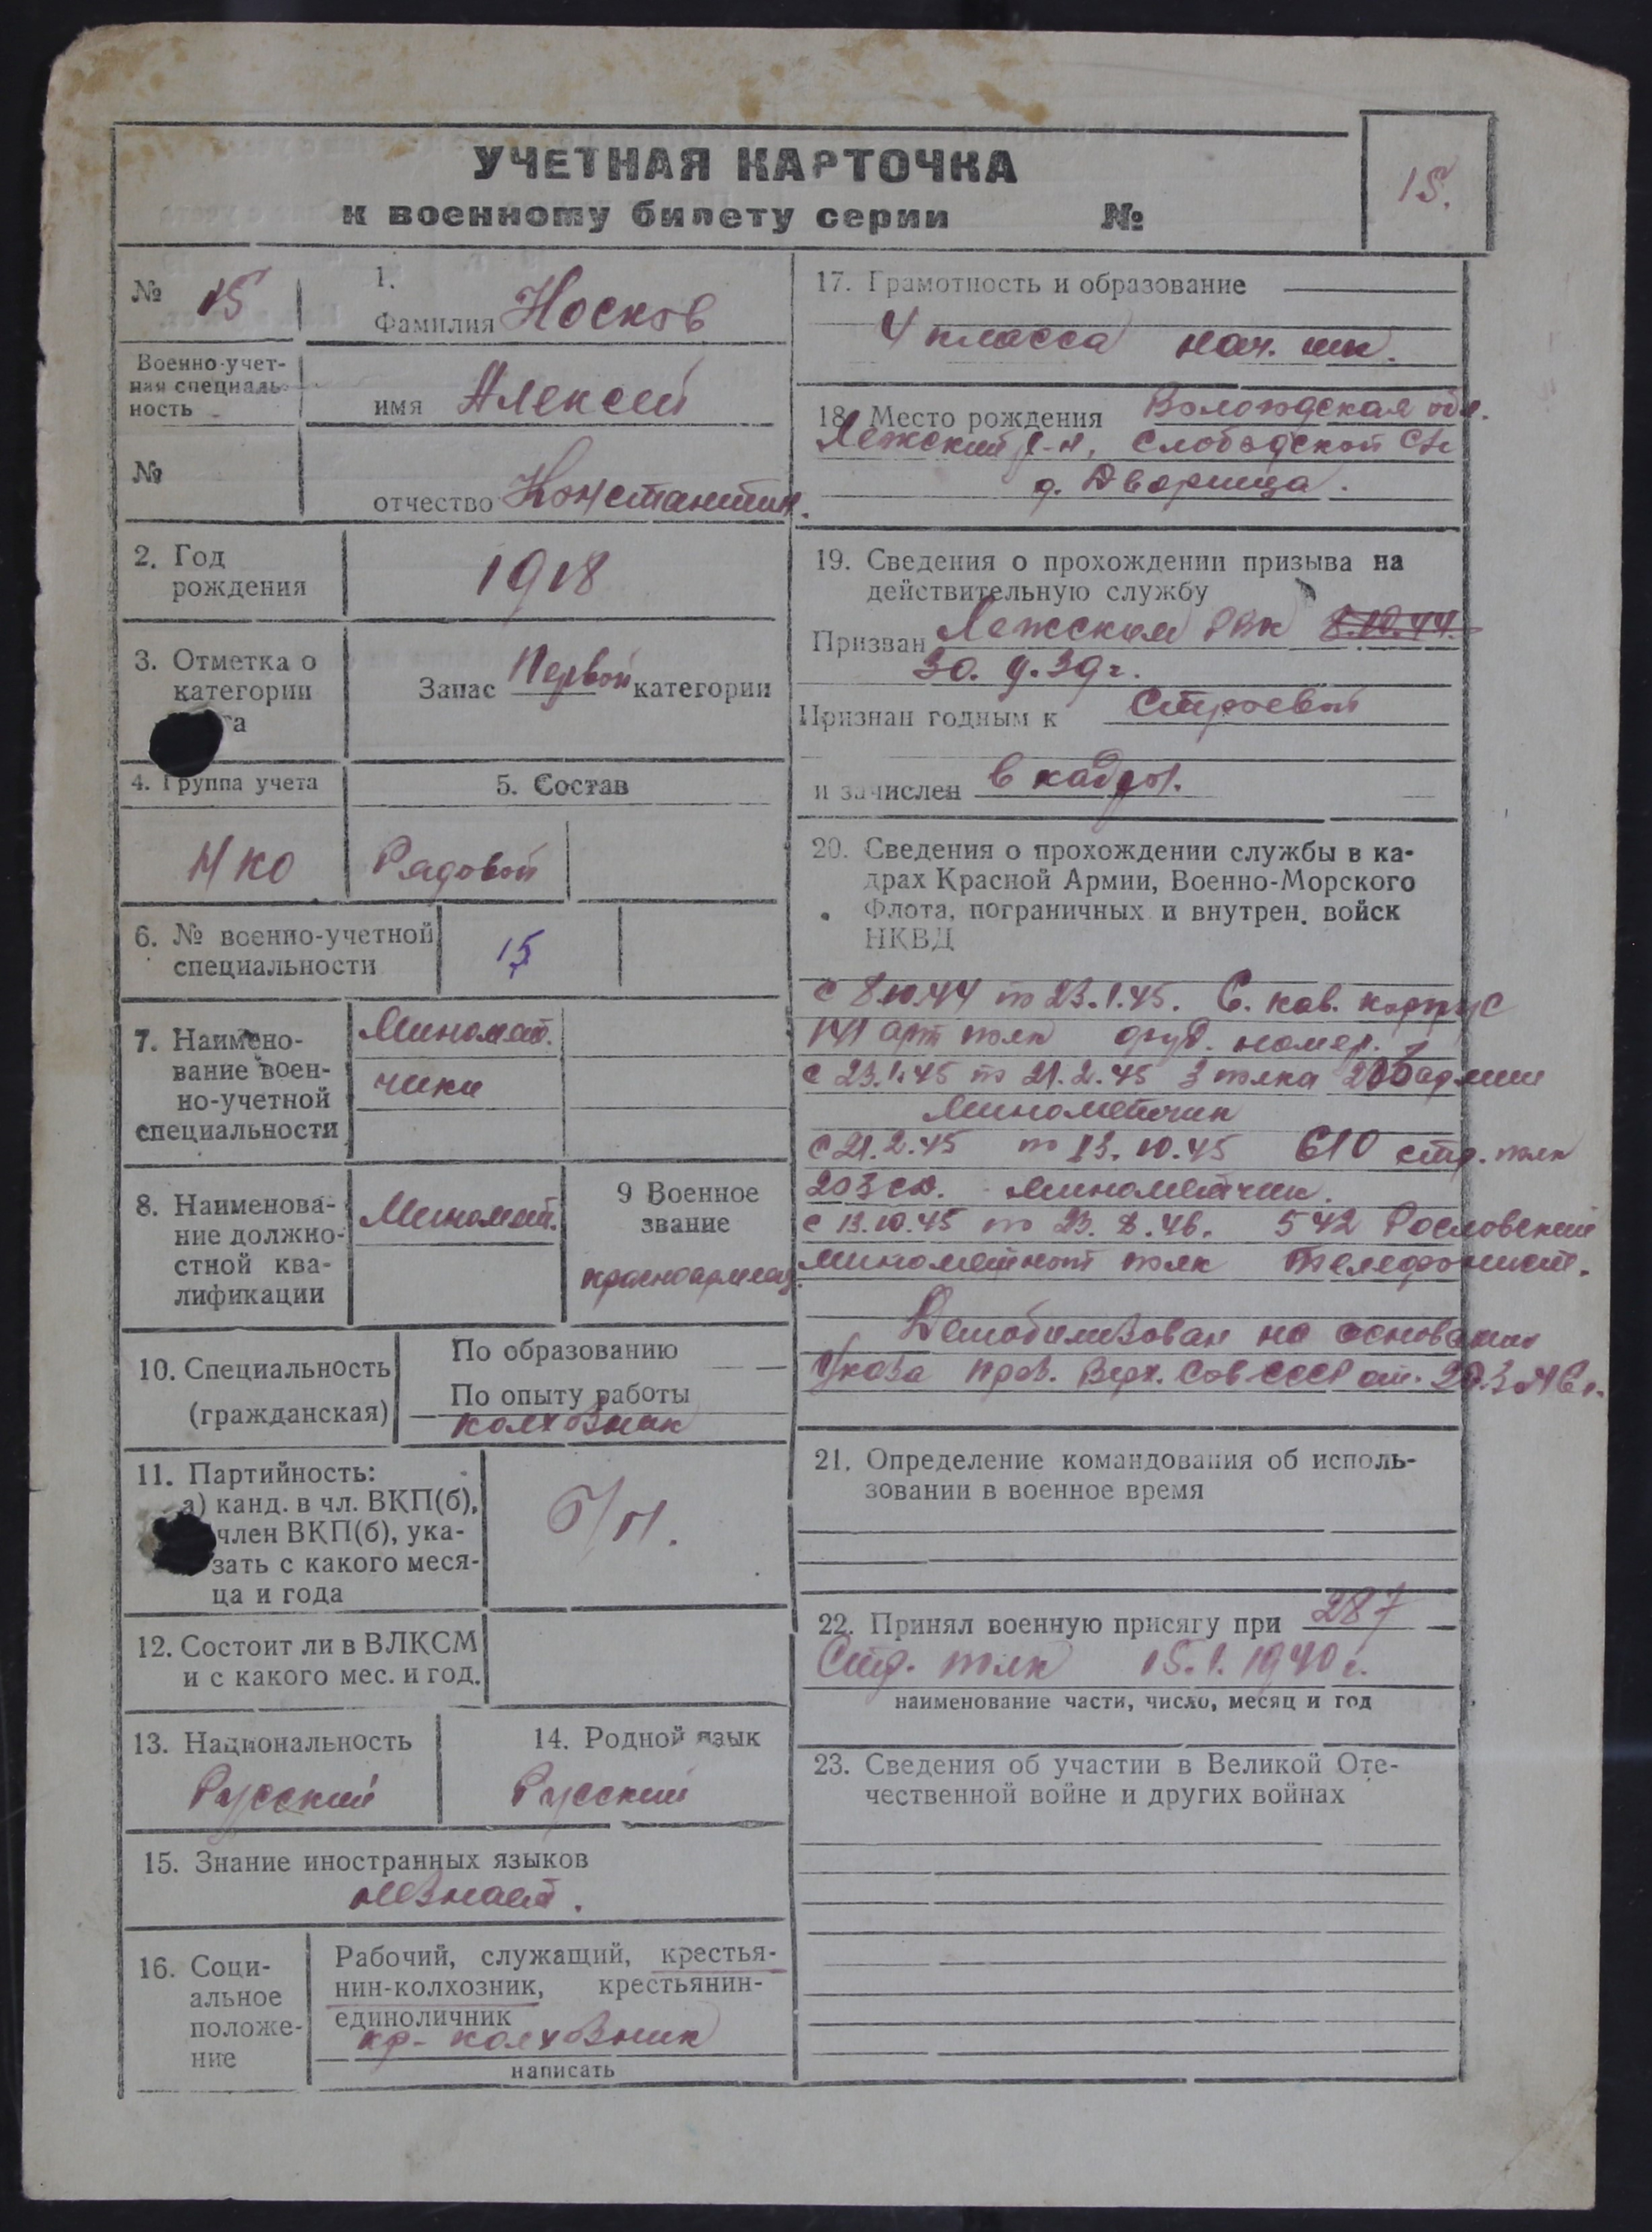 УЧЕТНАЯ КАРТОЧКА
к военному билету серии №
15.
№ 15
Военно-учет-
ная специаль-
ность
№
1.
Фамилия Носков
имя Алексей
отчество Константин.
2. Год
рождения
1918
3. Отметка о
категории
та
Запас Первой категории
4. Группа учета
НКО
5. Состав
Рядовой
6. № военно-учетной
специальности
15
7. Наимено-
вание воен-
но-учетной
специальности
Миномет.
чики
8. Наименова-
ние должно-
стной ква-
лификации
Миномет.
9 Военное
звание
красноармеец
10. Специальность
(гражданская)
По образованию
По опыту работы
колхозник
11. Партийность:
а) канд. в чл. ВКП(б),
член ВКП(б), ука-
зать с какого меся-
ца и года
Б/П.
12. Состоит ли в ВЛКСМ
и с какого мес. и год.
13. Национальность
Русский
14. Родной язык
Русский
15. Знание иностранных языков
незнает.
16. Соци-
альное
положе-
ние
Рабочий, служащий, крестья-
нин-колхозник, крестьянин-
единоличник
кр- колхозник
написать
17. Грамотность и образование
4 класса нач. шк.
18. Место рождения Вологодская обл.
Лежский р-н, Слободской с/с
д. Дворица.
19. Сведения о прохождении призыва на
действительную службу
Призван Лежским РВК 8.10.44.
30. 9. 39 г.
Признан годным к Строевой
и зачислен в кадры.
20. Сведения о прохождении службы в ка-
драх Красной Армии, Военно-Морского
Флота, пограничных и внутрен. войск
НКВД
с 8.10.44 по 23.1.45. 6. кав. корпус
арт полк оруд. номер.
с 23.1.45 по 21.2.45 3 полка армии
Минометчик
с 21.2.45 по 13.10.45 610 стр. полк
203 сд. минометчик.
с 13.10.45 по 23.8.46. 542
минометный полк телефонист.
Демобилизован на основании
Указа През. Верх. Сов СССР от. 20.3.46 г.
21. Определение командования об исполь-
зовании в военное время
22. Принял военную присягу при 287
Стр. полк 15.1.1940 г.
наименование части, число, месяц и год
23. Сведения об участии в Великой Оте-
чественной войне и других войнах